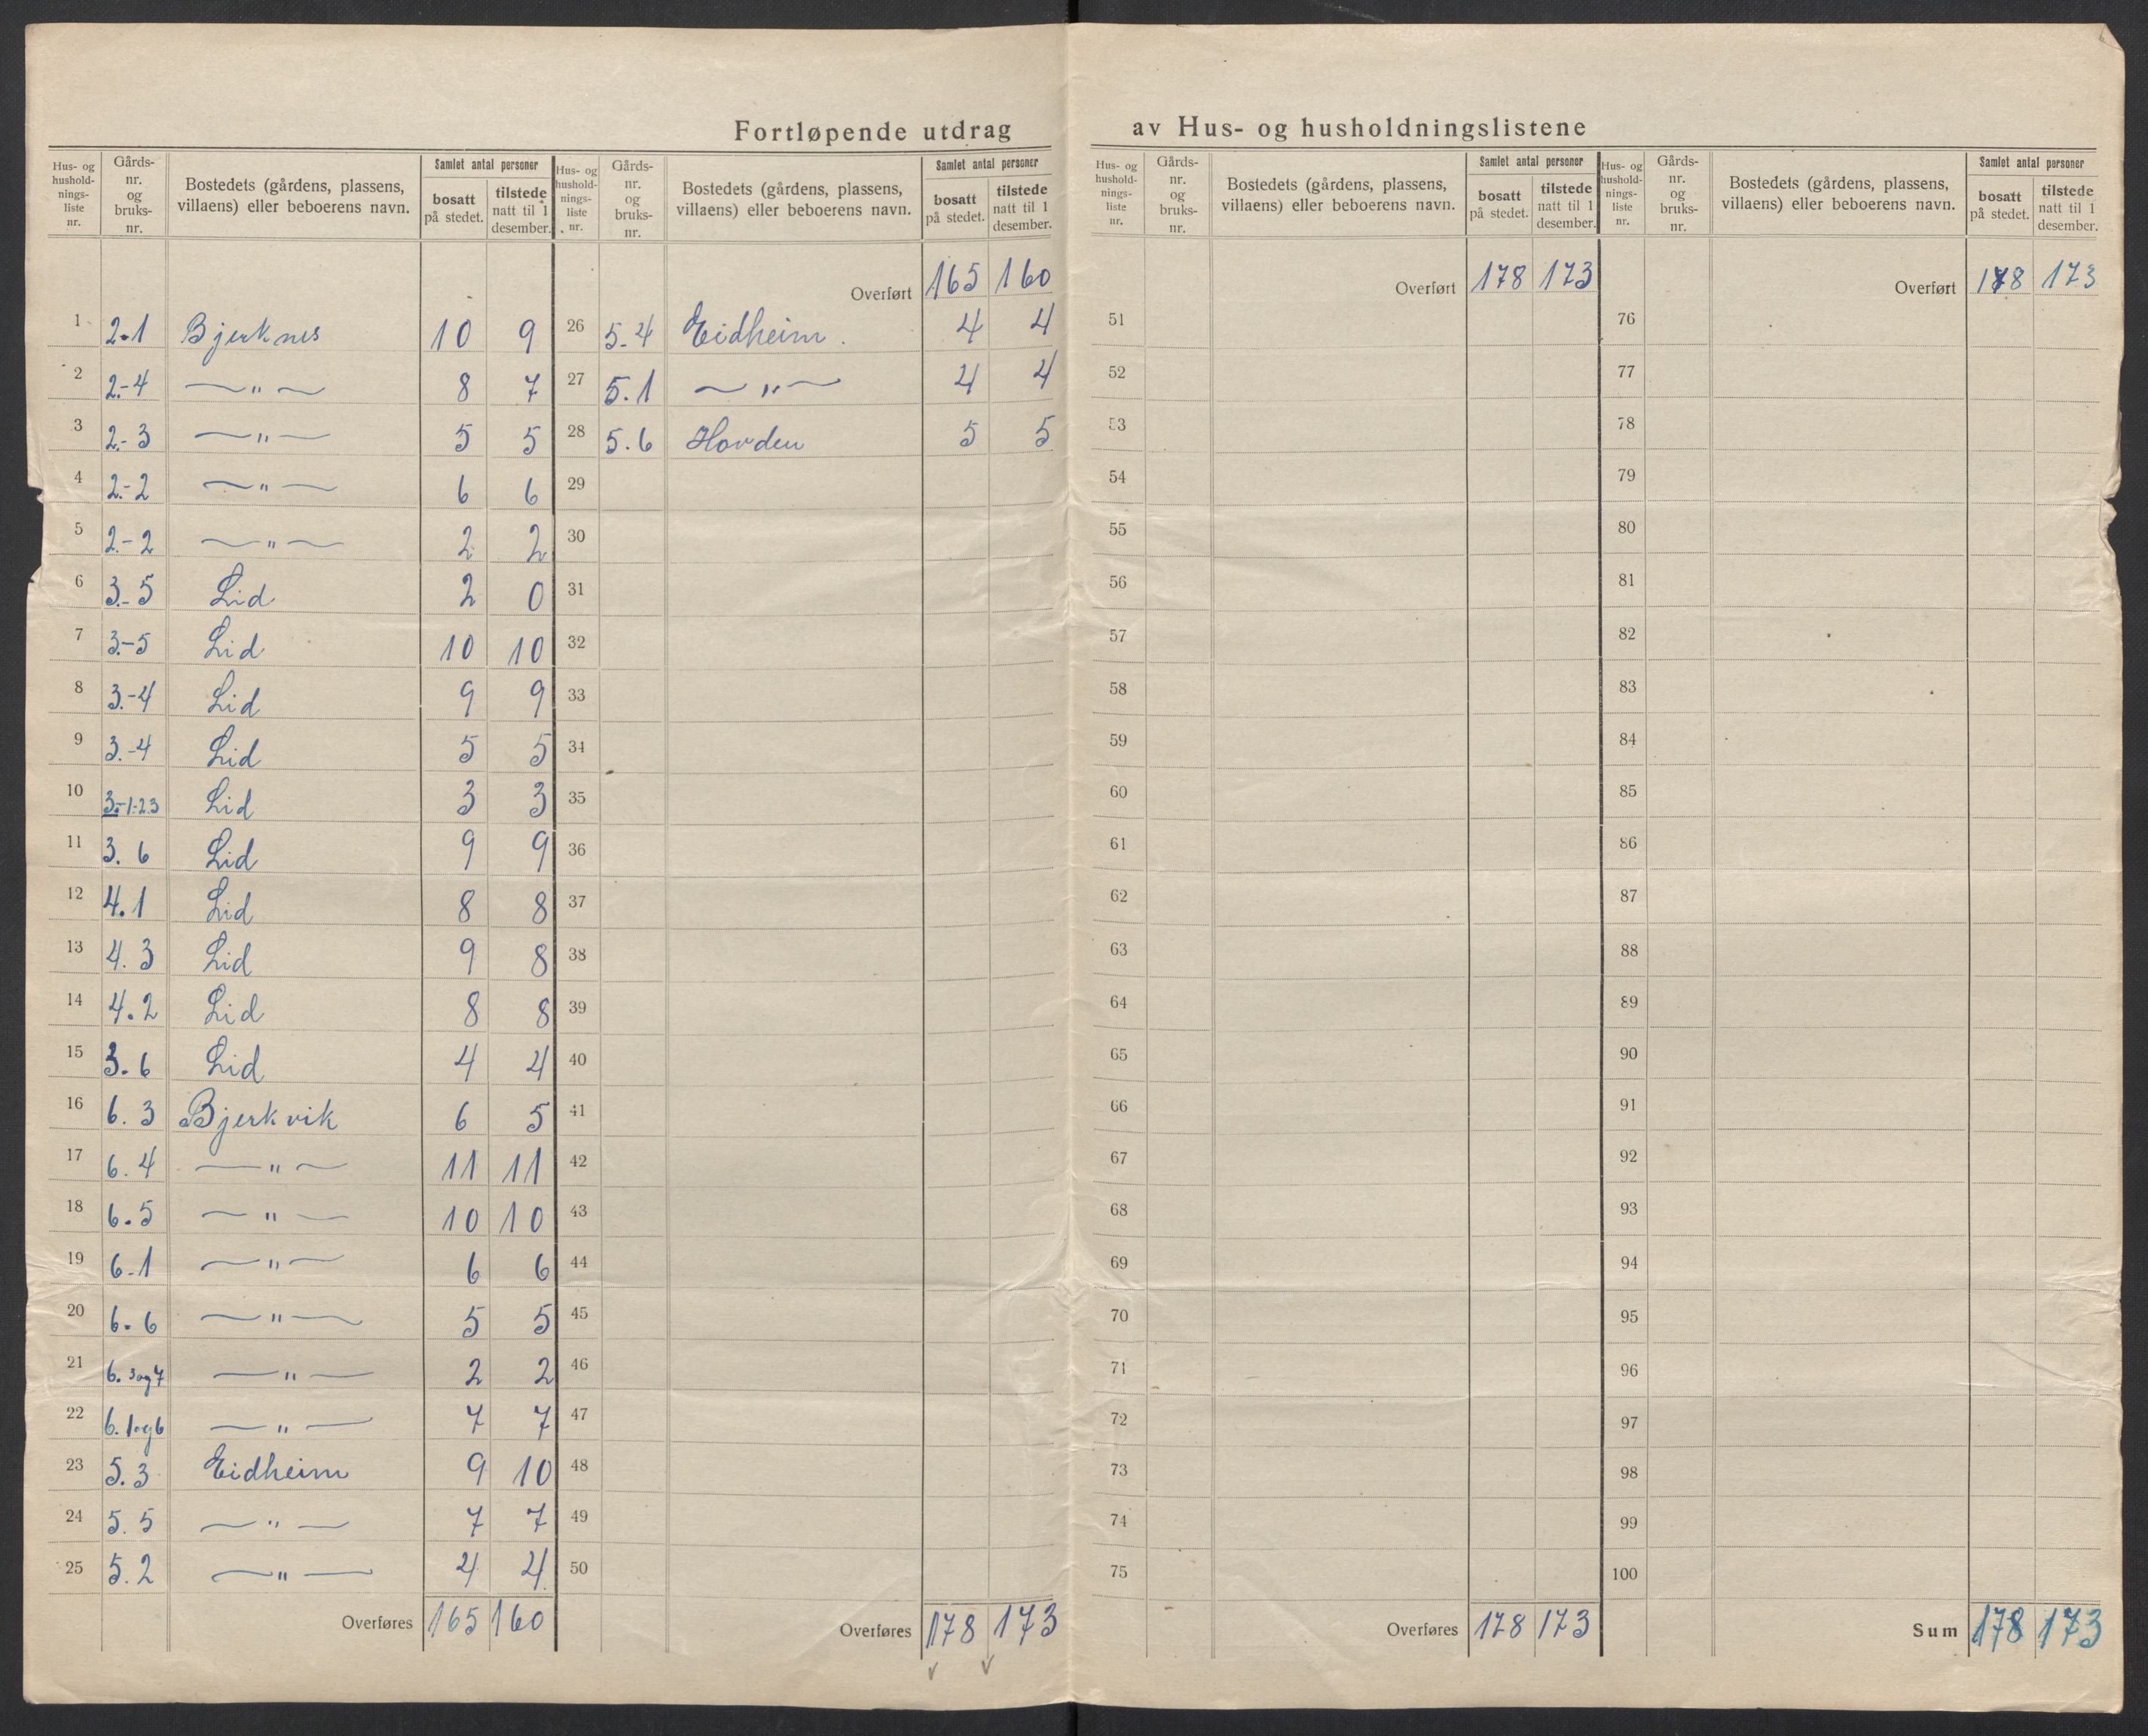 Fortløpende utdrag av Hus- og husholdningslistene
Hus- og hushold-nings-liste nr. Gårds-nr. og bruks-nr. Bostedets (gårdens, plassens, villaens) eller beboerens navn. Samlet antal personer bosatt på stedet. tilstede natt til 1 desember.
1 2.1 Bjerknes 10 9
2 2.-4 —"— 8 7
3 2.-3 —"— 5 5
4 2.-2 —"— 6 6
5 2.-2 —"— 2 2
6 3.-5 Lid 2 0
7 3.-5 Lid 10 10
8 3.-4 Lid 9 9
9 3.-4 Lid 5 5
10 3.-1-2.3 Lid 3 3
11 3.6 Lid 9 9
12 4.1 Lid 8 8
13 4.3 Lid 9 8
14 4.2 Lid 8 8
15 3.6 Lid 4 4
16 6.3 Bjerkvik 6 5
17 6.4 —"— 11 11
18 6.5 —"— 10 10
19 6-1 —"— 6 6
20 6.6 —"— 5 5
21 6.3og7 —"— 2 2
22 6.1og6 —"— 7 7
23 5.3 Eidheim 9 10
24 5.5 —"— 7 7
25 5.2 —"— 4 4
Overføres 165 160
Hus- og hushold-nings-liste nr. Gårds-nr. og bruks-nr. Bostedets (gårdens, plassens, villaens) eller beboerens navn. Samlet antal personer bosatt på stedet. tilstede natt til 1 desember.
Overført 165 160
26 5-4 Eidheim. 4 4
27 5.1 —"— 4 4
28 5.6 Hovden 5 5
29
30
31
32
33
34
35
36
37
38
39
40
41
42
43
44
45
46
47
48
49
50
Overføres 178 173
Hus- og hushold-nings-liste nr. Gårds-nr. og bruks-nr. Bostedets (gårdens, plassens, villaens) eller beboerens navn. Samlet antal personer bosatt på stedet. tilstede natt til 1 desember.
Overført 178 173
51
52
53
54
55
56
57
58
59
60
61
62
63
64
65
66
67
68
69
70
71
72
73
74
75
Overføres 178 173
Hus- og hushold-nings-liste nr. Gårds-nr. og bruks-nr. Bostedets (gårdens, plassens, villaens) eller beboerens navn. Samlet antal personer bosatt på stedet. tilstede natt til 1 desember.
Overført 178 173
76
77
78
79
80
81
82
83
84
85
86
87
88
89
90
91
92
93
94
95
96
97
98
99
100
Sum 178 173